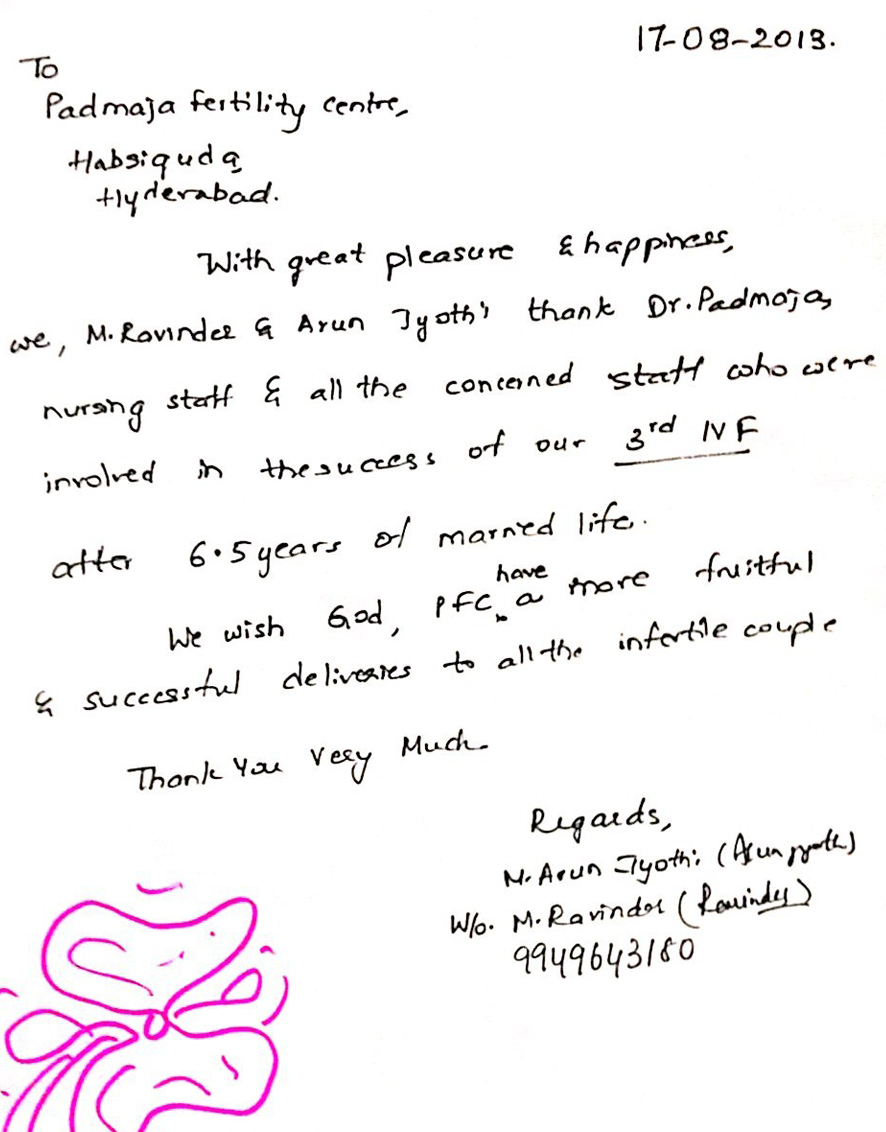 17-08-2013.
To
Padmaja fertility centre,
Habsiguda,
Hyderabad.
With great pleasure & happiness,
we, M. Ravinder & Arun Jyothi thank Dr. Padmaja,
nursing staff & all the concerned staff who were
involved in the success of our 3rd IVF
after 6.5 years of married life.
have
We wish God, PFC a more fruitful
& successful deliveries to all the infertile couple
Thank You Very Much.
Regards,
M. Arun Jyothi (Arun jyothi)
W/o. M. Ravinder (Ravinder)
9949643180